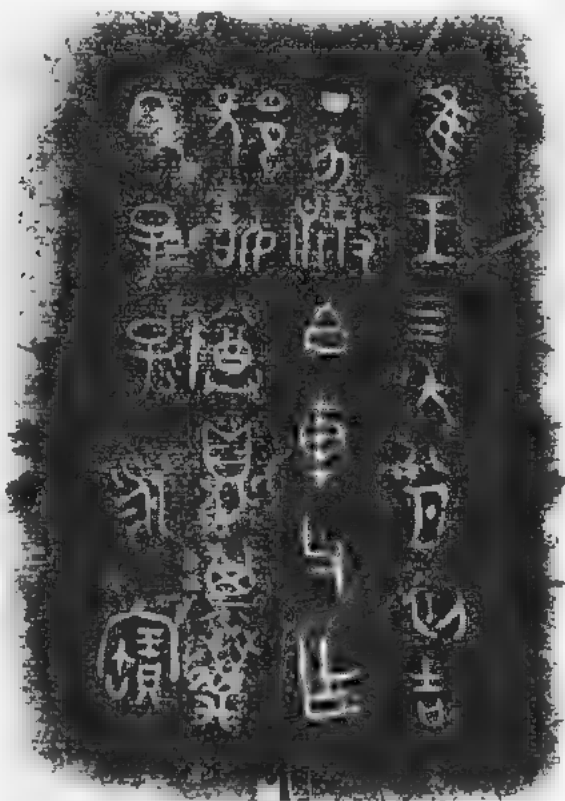 隹王四年八月初吉
丁亥散白車父乍
姞尊鼎其萬
年子孫永寶